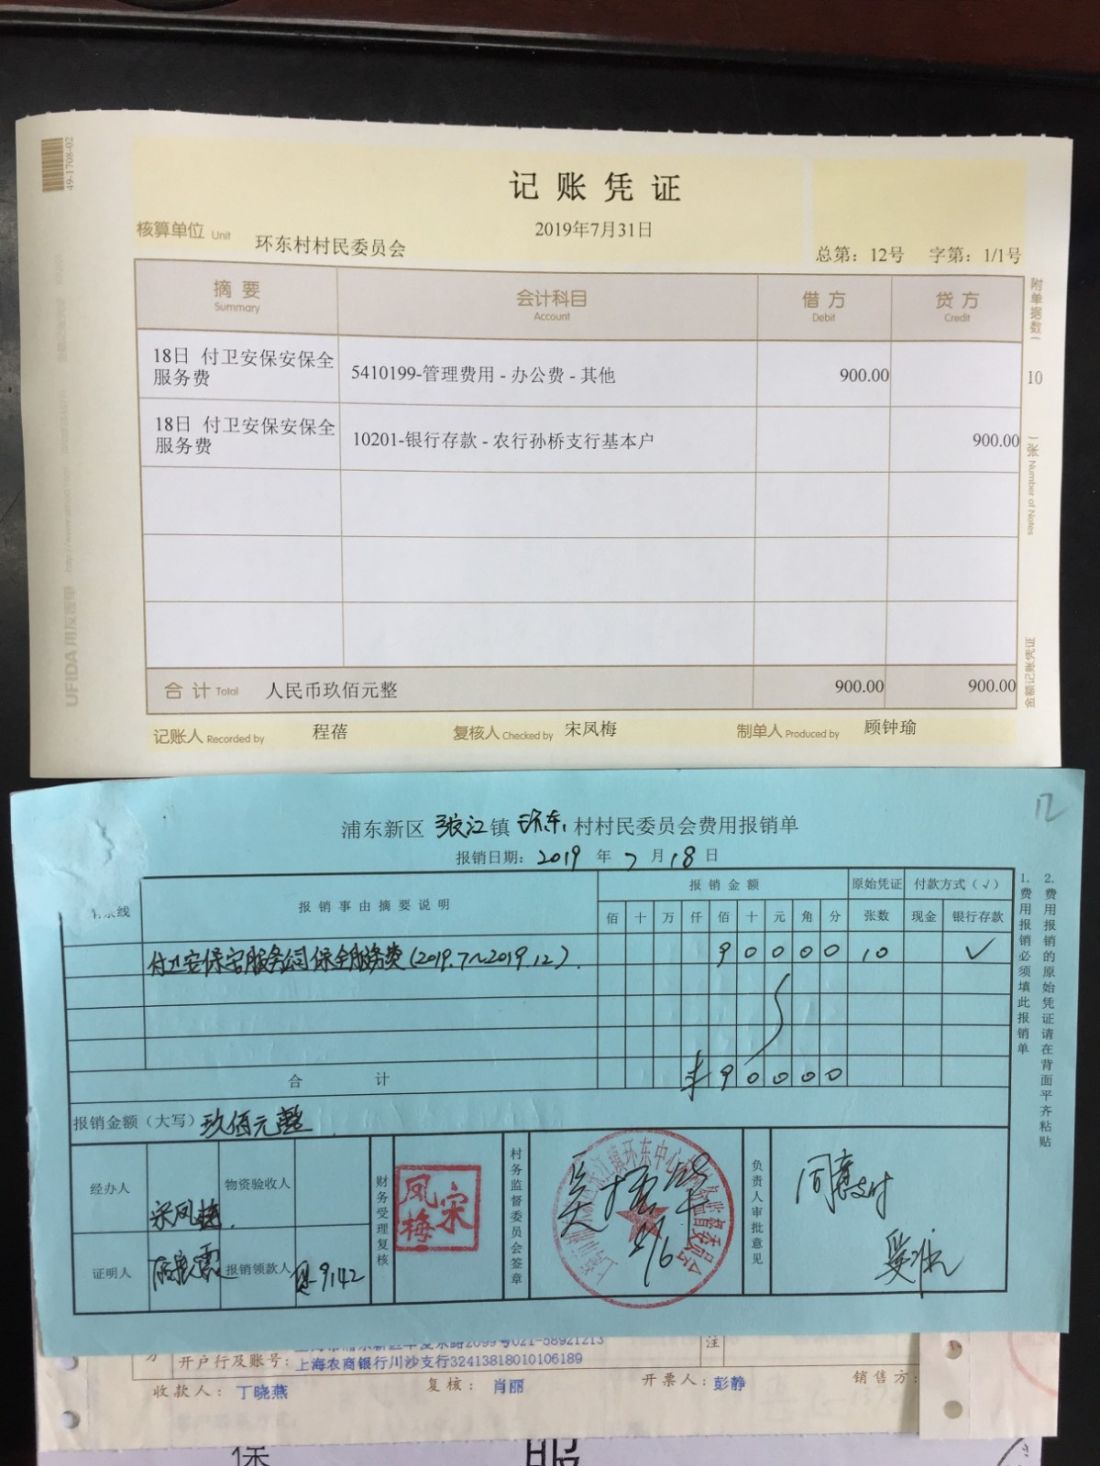 49-1708-02
记账凭证
2019年7月31日
核算单位 Unit 环东村村民委员会
总第：12号 字第：1/1号
摘要 会计科目 借方 贷方
Summary Account Debit Credit
附单据数（ 10 张）
18日 付卫安保安保全
服务费 5410199-管理费用 - 办公费 - 其他 900.00
18日 付卫安保安保全
服务费 10201-银行存款 - 农行孙桥支行基本户 900.00
合计 Total 人民币玖佰元整 900.00 900.00
金额记账凭证
UFIDA 用友表单
记账人 Recorded by 程蓓 复核人 Checked by 宋凤梅 制单人 Produced by 顾钟瑜
12
浦东新区 张江 镇 环东 村村民委员会费用报销单
报销日期：2019 年 7 月 18 日
报销事由摘要说明 报销金额 原始凭证 付款方式（√）
佰 十 万 仟 佰 十 元 角 分 张数 现金 银行存款
付卫安保安服务公司保全服务费(2019.7~2019.12) 90000 10 √
合计 ¥90000
报销金额（大写）玖佰元整
经办人 宋凤梅 物资验收人
证明人 报销领款人 9142
财务受理复核
宋凤梅
村务监督委员会签章
负责人审批意见
同意支付
1. 费用报销必须填此报销单
2. 费用报销的原始凭证请在背面平齐粘贴
方
注
开户行及账号：上海农商银行川沙支行32413818010106189
收款人：丁晓燕 复核：肖丽 开票人：彭静 销售方：
保 服